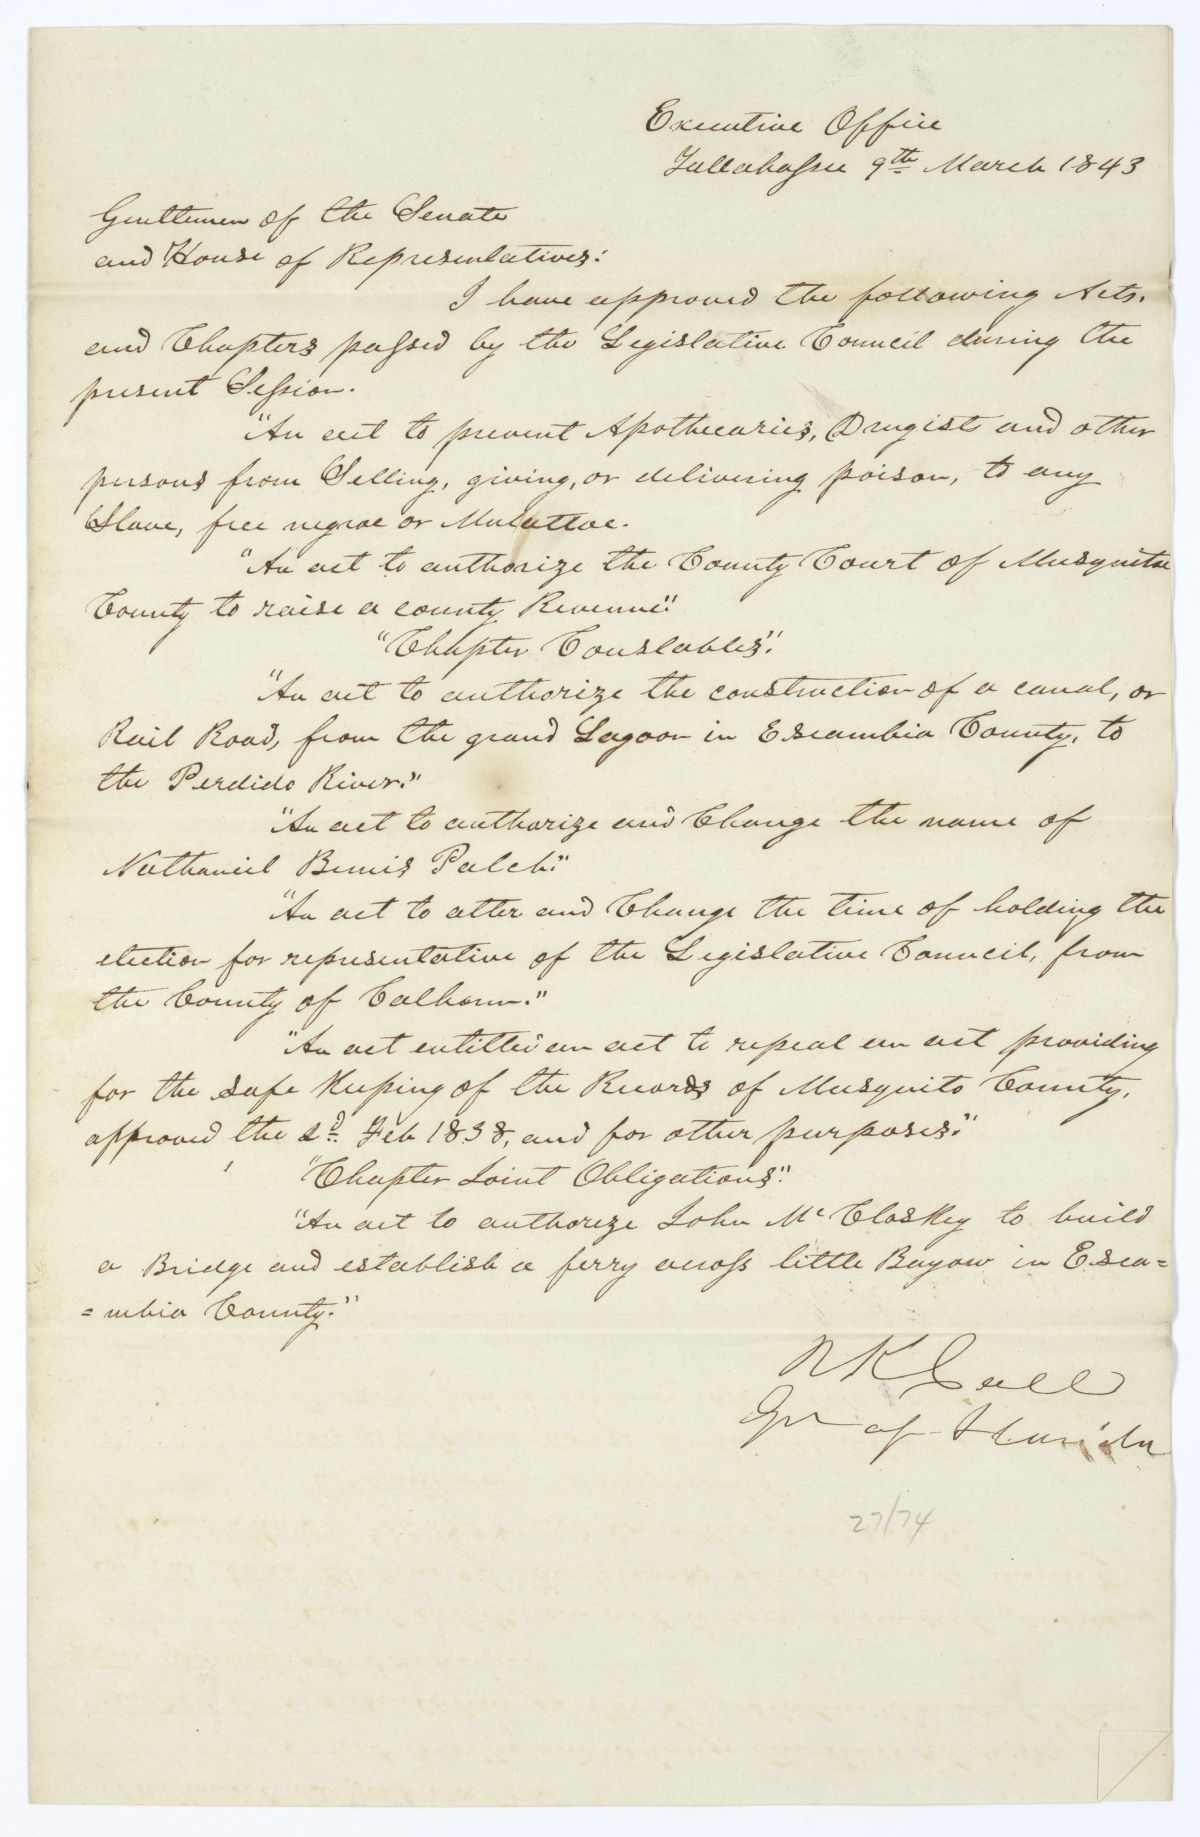 Executive Office
Tallahassee 9th March 1843
Gentlemen of the Senate
and House of Representatives:
I have approved the following Acts,
and Chapters passed by the Legislative Council during the
present Session.
"An act to prevent Apothecaries, Drugist and other
persons from Selling, giving, or delivering poison, to any
Slave, free negroe or Mulattoe.
"An act to authorize the County Court of Musquitoe
County to raise a county Revenue."
"Chapter Constables".
"An act to authorize the construction of a canal, or
Rail Road, from the grand Lagoon in Escambia County, to
the Perdido River."
"An act to authorize and Change the name of
Nathaniel Bemis Palch."
"An act to alter and Change the time of holding the
election for representative of the Legislative Council, from
the County of Calhoun."
"An act entitled an act to repeal an act providing
for the safe Keeping of the Records of Musquito County,
approved the 2d. Feb 1838, and for other purposes."
"Chapter Joint Obligations".
"An act to authorize John Mc Closkey to build
a Bridge and establish a ferry across little Bayow in Esca=
=mbia County."
R K Call
Gov of Florida
27/74